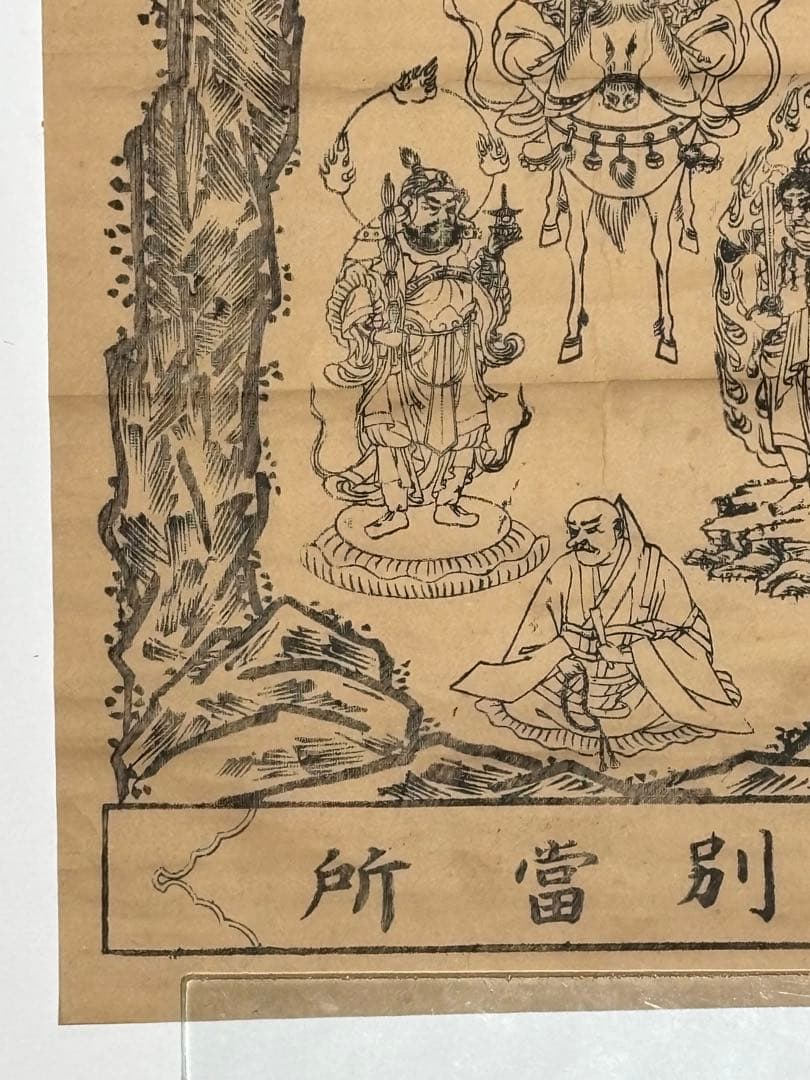 別當所